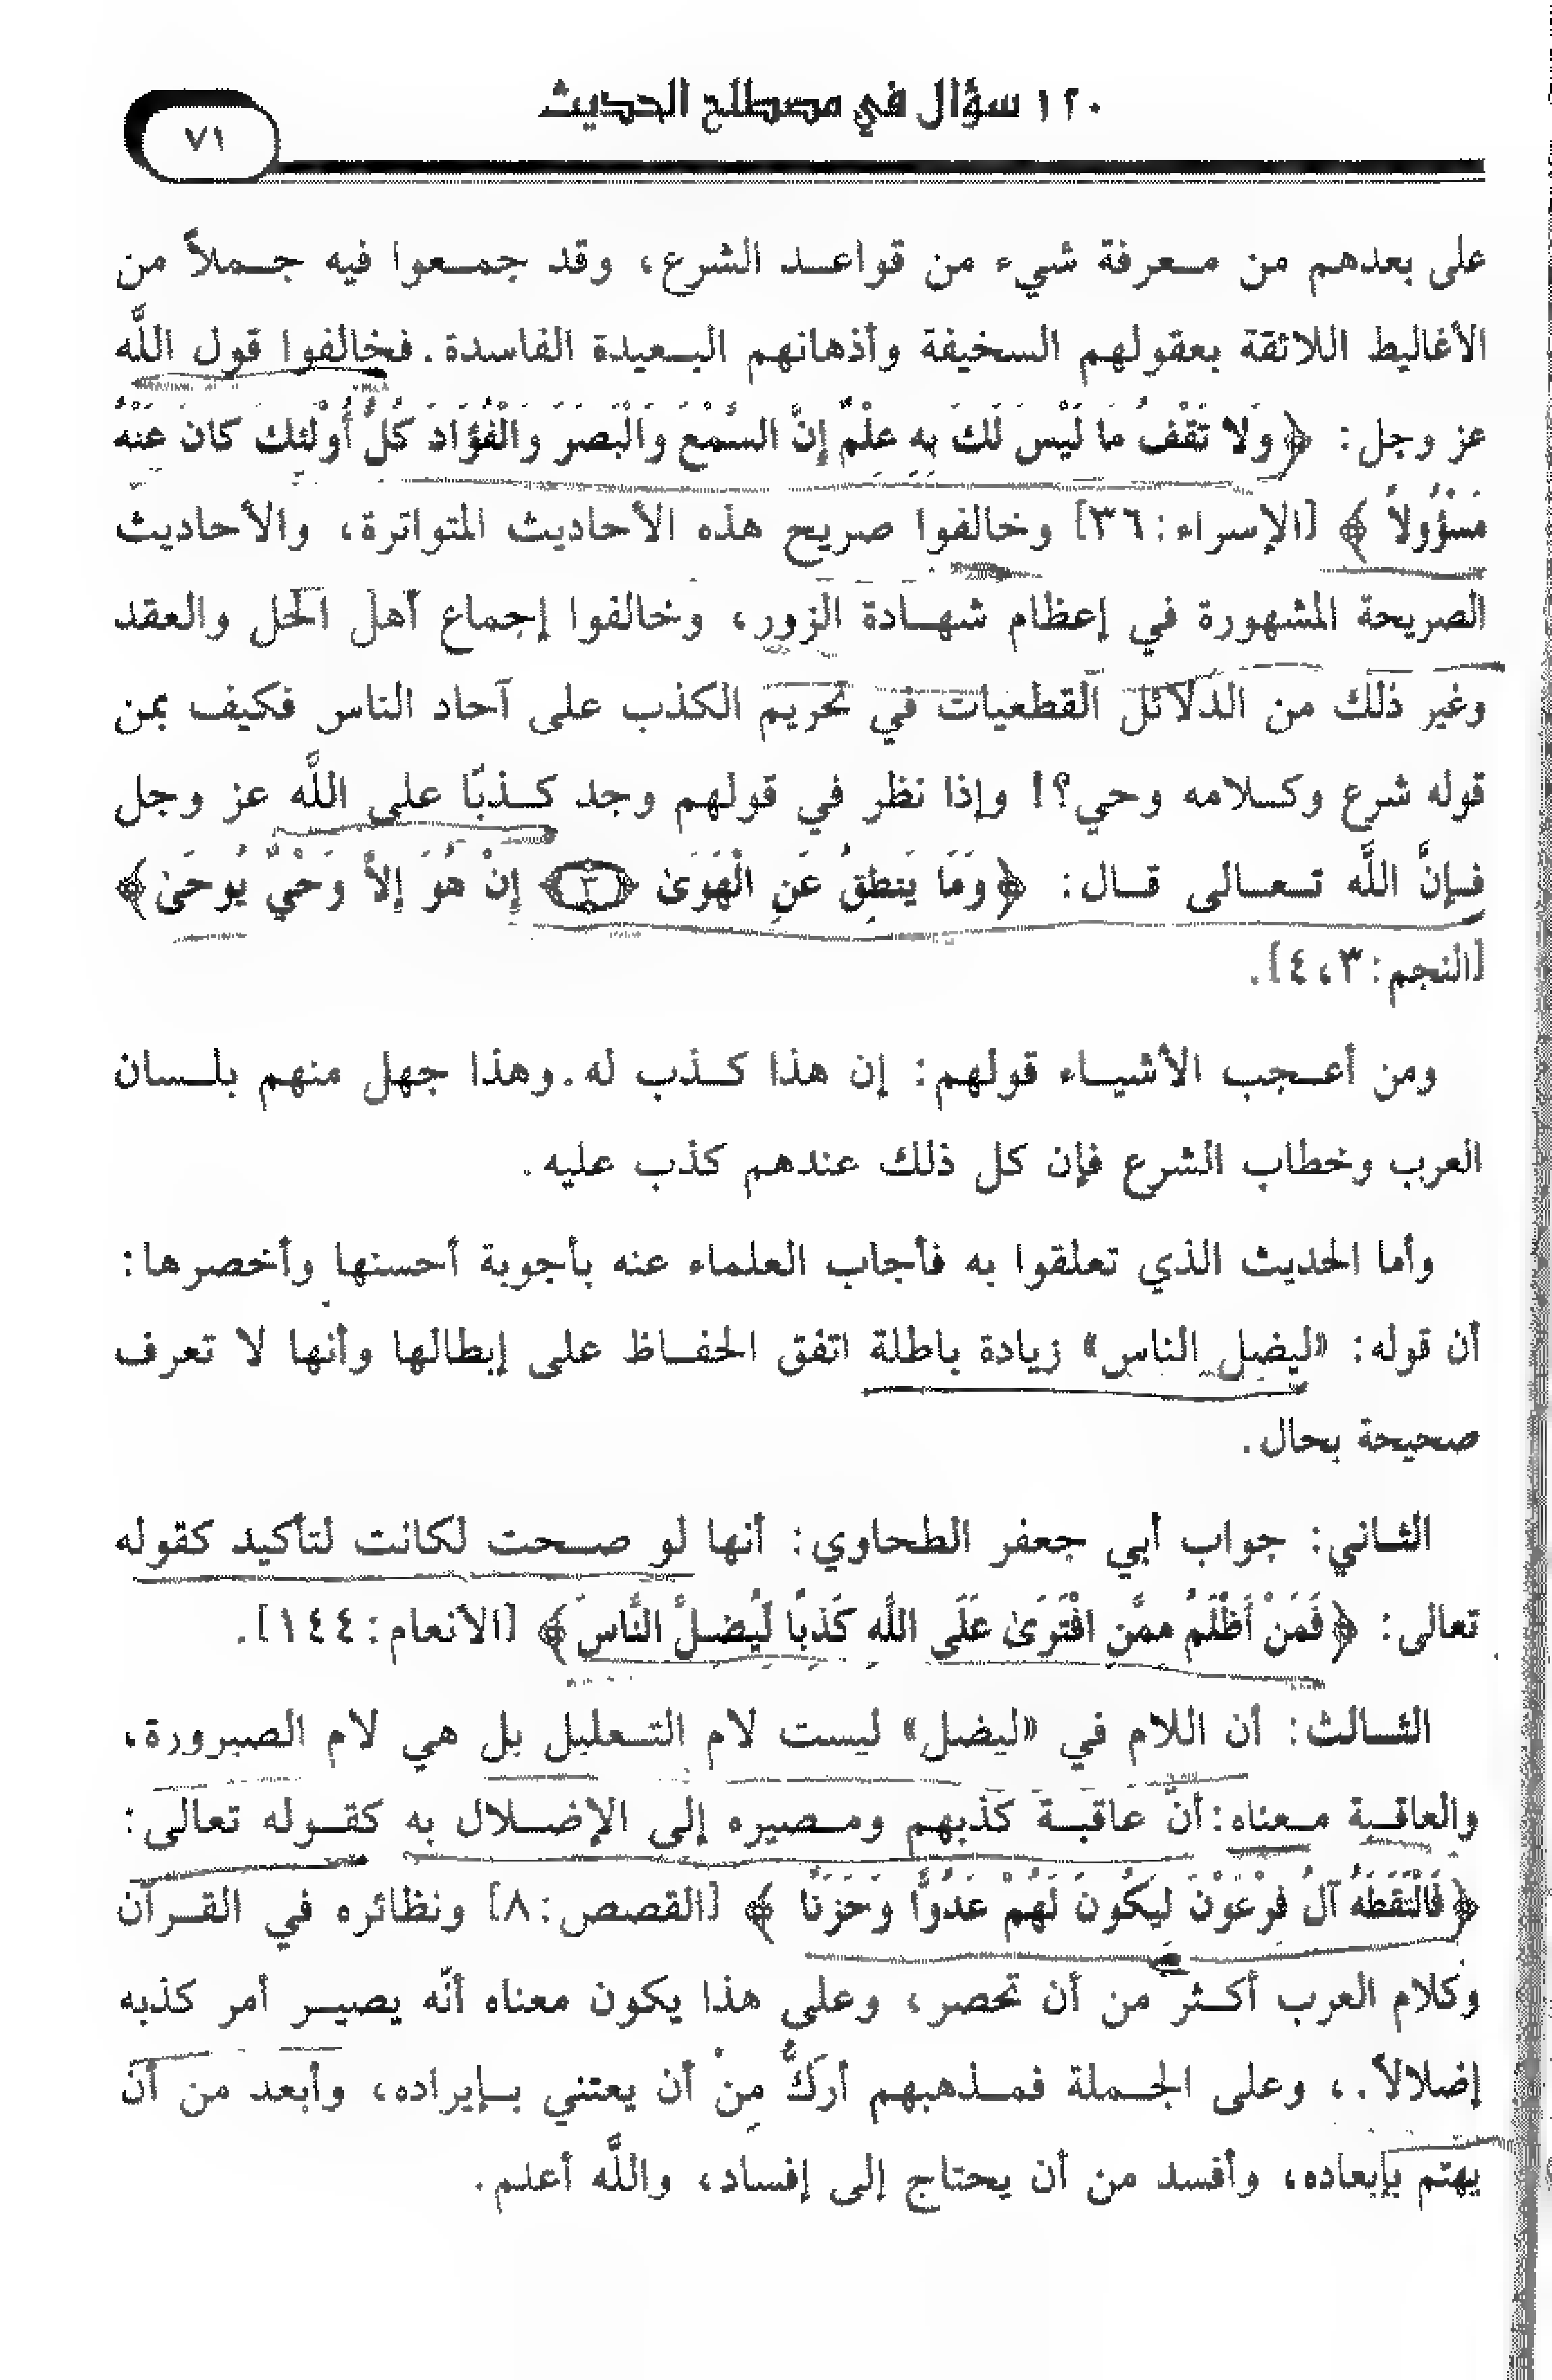 ١٢٠ سؤال في مصطلح الحديث
٧١
على بعدهم من معرفة شيء من قواعد الشرع، وقد جمعوا فيه جملاً من
الأغاليط اللائقة بعقولهم السخيفة وأذهانهم البعيدة الفاسدة. فخالفوا قول اللَّه
عز وجل: ﴿وَلا تَقْفُ مَا لَيْسَ لَكَ بِهِ عِلْمٌ إِنَّ السَّمْعَ وَالْبَصَرَ وَالْفُؤَادَ كُلُّ أُوْلَئِكَ كَانَ عَنْهُ
مَسْؤُولاً ﴾ [الإسراء: ٣٦] وخالفوا صريح هذه الأحاديث المتواترة، والأحاديث
الصريحة المشهورة في إعظام شهادة الزور، وخالفوا إجماع أهل الحل والعقد
وغير ذلك من الدلائل القطعيات في تحريم الكذب على آحاد الناس فكيف بمن
قوله شرع وكلامه وحي؟! وإذا نظر في قولهم وجد كذبًا على اللَّه عز وجل
فإنَّ اللَّه تعالى قال: ﴿وَمَا يَنطِقُ عَنِ الْهَوَىٰ ﴿٣﴾ إِنْ هُوَ إِلاَّ وَحْيٌ يُوحَىٰ﴾
[النجم: ٣، ٤].
ومن أعجب الأشياء قولهم: إن هذا كذب له. وهذا جهل منهم بلسان
العرب وخطاب الشرع فإن كل ذلك عندهم كذب عليه.
وأما الحديث الذي تعلقوا به فأجاب العلماء عنه بأجوبة أحسنها وأخصرها:
أن قوله: «ليضل الناس» زيادة باطلة اتفق الحفاظ على إبطالها وأنها لا تعرف
صحيحة بحال.
الثاني: جواب أبي جعفر الطحاوي: أنها لو صحت لكانت لتأكيد كقوله
تعالى: ﴿فَمَنْ أَظْلَمُ مِمَّنِ افْتَرَىٰ عَلَى اللَّهِ كَذِبًا لِيُضِلَّ النَّاسَ﴾ [الأنعام: ١٤٤].
الثالث: أن اللام في «ليضل» ليست لام التعليل بل هي لام الصيرورة،
والعاقبة معناه: أنّ عاقبة كذبهم ومصيره إلى الإضلال به كقوله تعالى:
﴿فَالْتَقَطَهُ آلُ فِرْعَوْنَ لِيَكُونَ لَهُمْ عَدُوًّا وَحَزَنًا ﴾ [القصص: ٨] ونظائره في القرآن
وكلام العرب أكثر من أن تحصر، وعلى هذا يكون معناه أنّه يصير أمر كذبه
إضلالاً.، وعلى الجملة فمذهبهم أركُّ مِنْ أن يعتني بإيراده، وأبعد من أن
يهتم بإبعاده، وأفسد من أن يحتاج إلى إفساد، واللَّه أعلم.